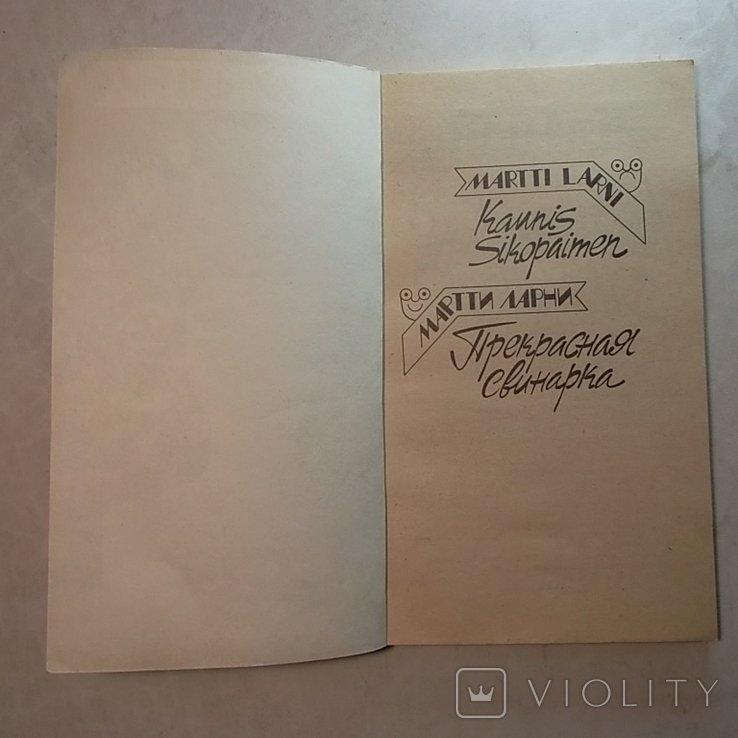 MARTTI LARNI
Kaunis
Sikopaimen
МАРТТИ ЛАРНИ
Прекрасная
свинарка
VIOLITY